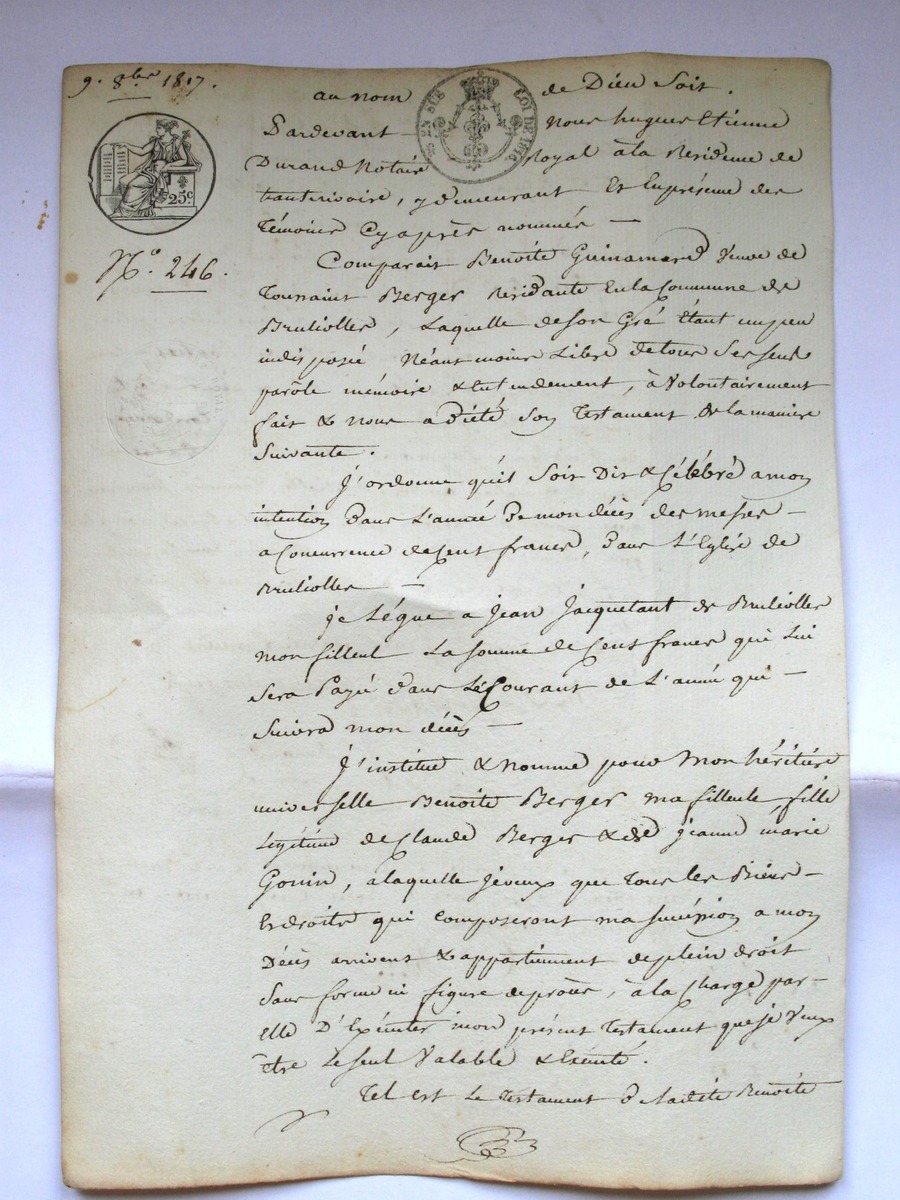 9. 8bre 1817.
au nom de Dieu Soit.
Pardevant Nous hugues Etienne
Durand Notaire Royal à la Residence de
hauterivoire, y demeurant Et En présence des
Témoins Cy après nommés —
EN SUS LOI DE 1816
25c
No. 246.
Comparait Benoite Guinamard Veuve de
Toussaint Berger Residante En la Commune de
Brullioles, Laquelle de son Gré Etant un peu
indisposée Néant moins Libre de tous ses sens
parole mémoire & Entendement, à Volontairement
fait & nous a Dicté Son Testament de la maniere
Suivante.
J'ordonne qu'il Soit Dit & Célébré a mon
intention Dans L'année De mon décès des messes —
a Concurrence de Cent francs, Dans L'Eglise de
Brullioles —
je Lègue a jean jacquetant de Brullioles
mon filleul La somme de Cent francs qui Lui
Sera Payé Dans Le Courant de L'année qui —
Suivra mon décès —
J'institue & nomme pour Mon héritière
universelle Benoite Berger ma filleule, fille
Légitime de Claude Berger & de jeanne marie
Gonin, a laquelle je veux que Tous les Biens —
Et droits qui Composeront ma succession a mon
Décès arrivent & appartiennent de plein droit
Sans forme ni figure de procès, à la Charge par —
elle D'Exécuter mon présent Testament que je Veux
être Le seul Valable & Exécuté.
Tel est Le Testament De Ladite Benoite